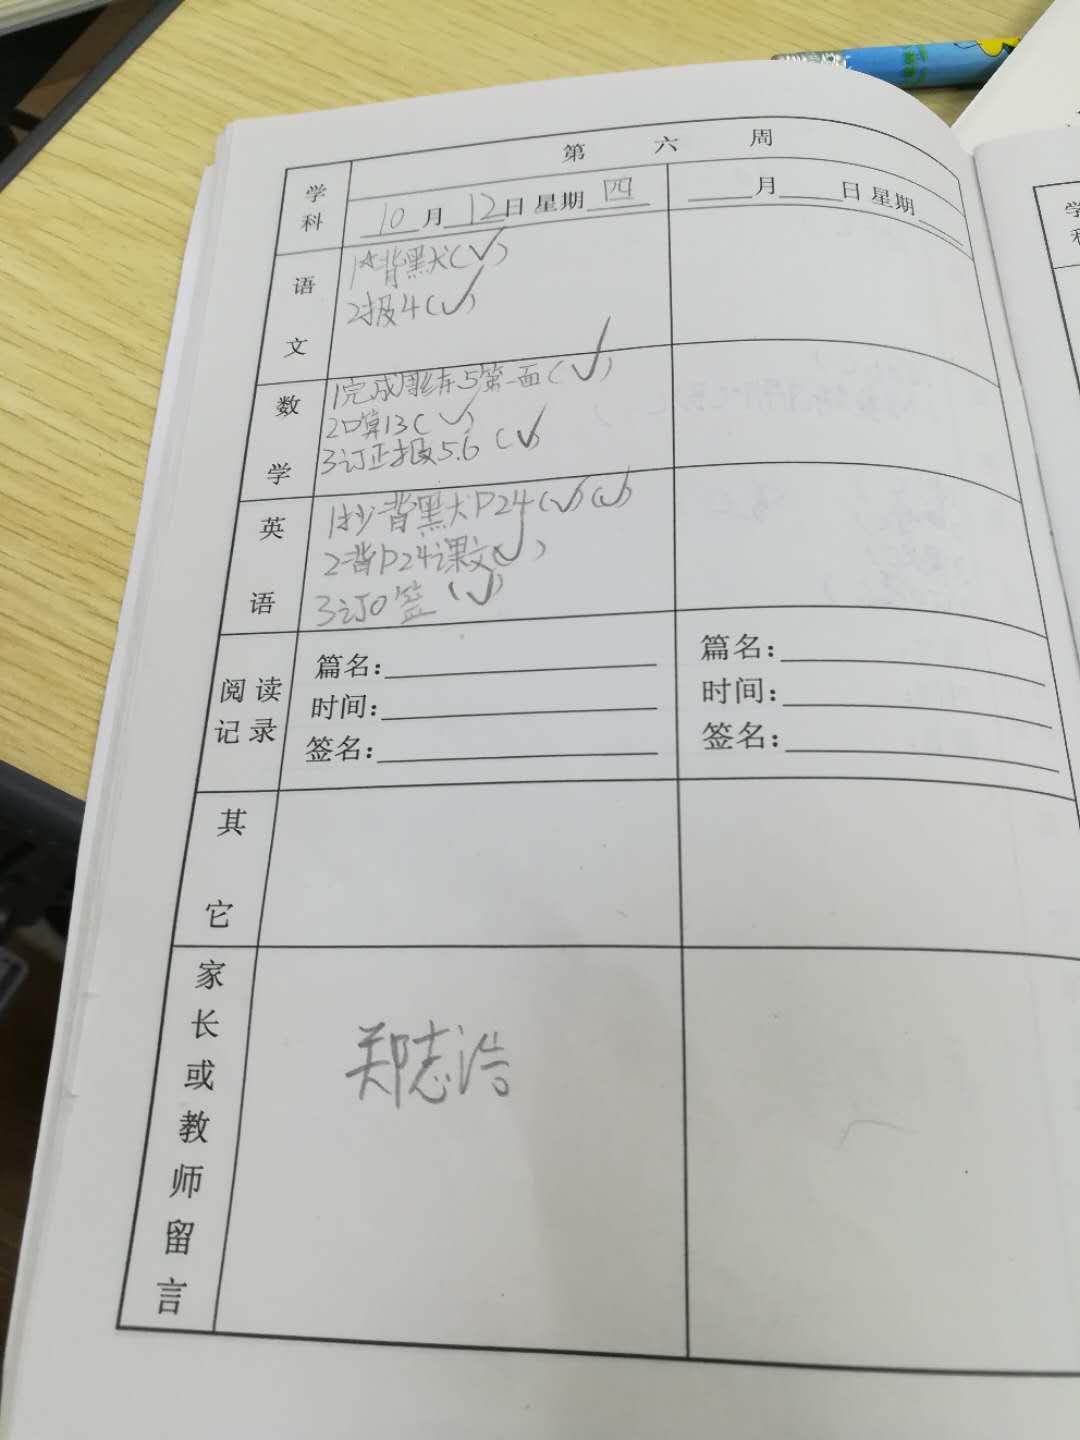 第 六 周
学科
10月12日 星期四
月 日 星期
语文
1☆背黑犬(✓)
2报4(✓)
数学
1完成周练5第一面(✓)
2口算13(✓)
3订正报5.6(✓)
英语
1抄背黑犬P24(✓)(✓)
2背P24课文(✓)
3订0签(✓)
阅读记录
篇名:
时间:
签名:
篇名:
时间:
签名:
其它
家长或教师留言
郑志浩